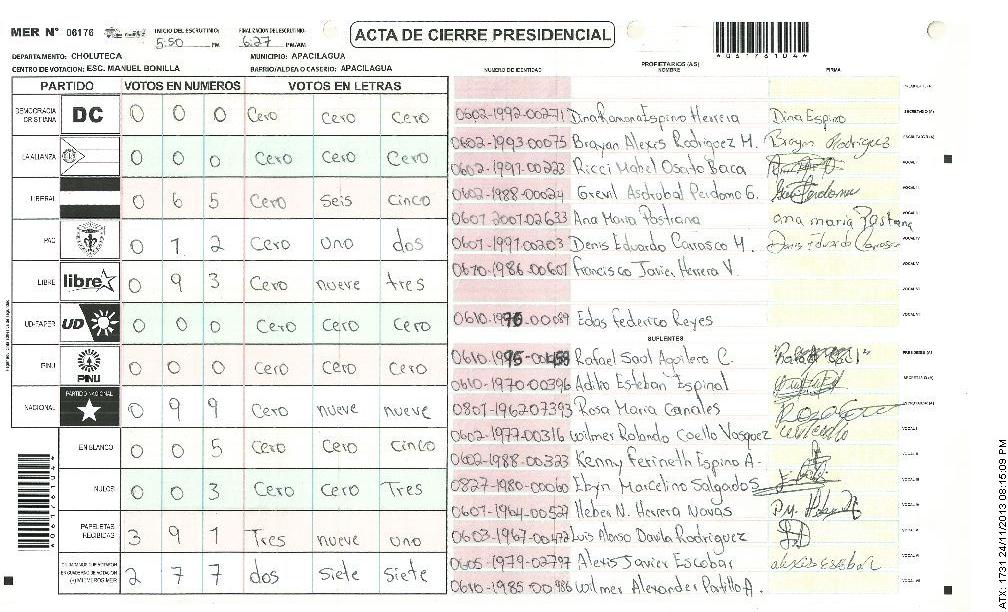 MER N° 06176
INICIO DEL ESCRUTINIO: 5:50 PM
FINALIZACION DEL ESCRUTINIO: 6:27 PM/AM
ACTA DE CIERRE PRESIDENCIAL
*06176104*
DEPARTAMENTO: CHOLUTECA
MUNICIPIO: APACILAGUA
CENTRO DE VOTACION: ESC. MANUEL BONILLA
BARRIO/ALDEA O CASERIO: APACILAGUA
PARTIDO VOTOS EN NUMEROS VOTOS EN LETRAS
DEMOCRACIA CRISTIANA DC 0 0 0 Cero Cero Cero
LA ALIANZA 0 0 0 Cero Cero Cero
LIBERAL 0 6 5 Cero Seis Cinco
PAC 0 1 2 Cero uno dos
LIBRE libre 0 9 3 Cero nueve tres
UD-FAPER UD 0 0 0 Cero Cero Cero
PINU PINU 0 0 0 Cero Cero Cero
NACIONAL PARTIDO NACIONAL 0 9 9 Cero nueve nueve
EN BLANCO 0 0 5 Cero Cero Cinco
NULOS 0 0 3 Cero Cero Tres
PAPELETAS RECIBIDAS 3 9 1 Tres nueve uno
2 7 7 dos siete siete
NUMERO DE IDENTIDAD
PROPIETARIOS (AS)
NOMBRE
FIRMA
0602-1992-00271 Dina Ramona Espino Herrera Dina Espino
0602-1993-00075 Brayan Alexis Rodriguez M. Brayan Rodriguez
0602-1991-00223 Ricci Mabel Osorto Baca
0602-1988-00024 Grevil Asdrobal Perdomo G.
0601 2001 02633 Ana Maria Pastrana ana maria Pastrana
0601-1991-00203 Denis Eduardo Carrasco M. Denis Eduardo Carrasco
0610-1986-00601 Francisco Javier Herrera V.
Edas Federico Reyes
SUPLENTES
Rafael Saol Aguilera C.
0610-1970-00396 Adilio Esteban Espinal
0801-1962-07393 Rosa Maria Canales
0602-1977-00316 Wilmer Rolando Coello Vasquez
0602-1988-00323 Kenny Ferineth Espino A.
0827-1980-00060 Ebyn Marcelino Salgado S.
0601-1964-00527 Heber N. Herrera Novas
0603-1967-00472 Luis Alonso Davila Rodriguez
0605-1979-02797 Alexis Javier Escobar alexis Escobar
0610-1985-00986 Wilmer Alexander Patillo A.
*06176104*
ATX: 1731 24/11/2013 08:15:09 PM